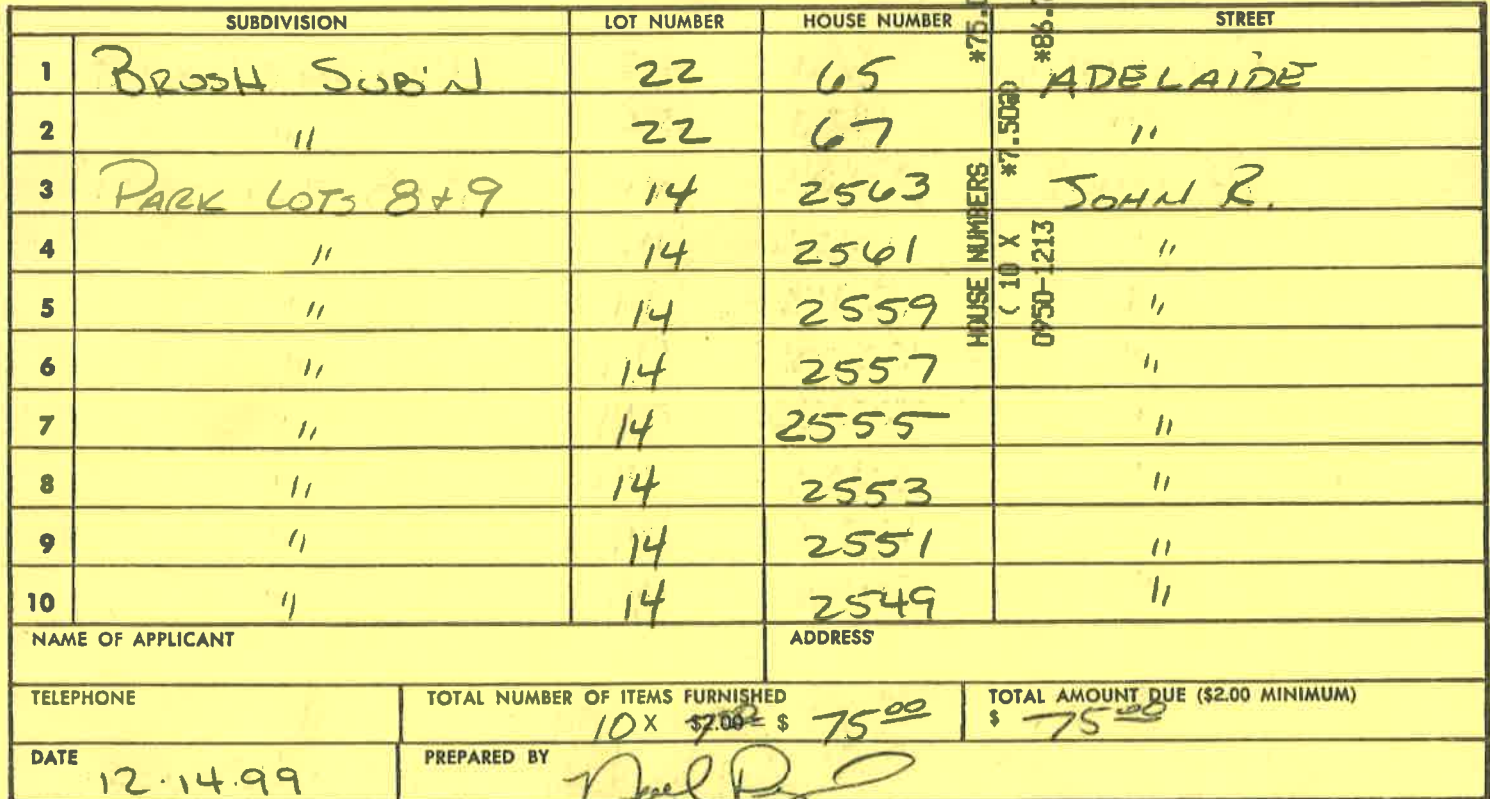 SUBDIVISION LOT NUMBER HOUSE NUMBER STREET
1 BRUSH SUB'N 22 65 ADELAIDE
2 " 22 67 "
3 PARK LOTS 8+9 14 2563 JOHN R.
4 " 14 2561 "
5 " 14 2559 "
6 " 14 2557 "
7 " 14 2555 "
8 " 14 2553 "
9 " 14 2551 "
10 " 14 2549 "
HOUSE NUMBERS *75.
( 10 X *7.50@)
0950-1213 *86.
NAME OF APPLICANT ADDRESS
TELEPHONE TOTAL NUMBER OF ITEMS FURNISHED TOTAL AMOUNT DUE ($2.00 MINIMUM)
10 X $2.00 = $ 75.00 $ 75.00
DATE PREPARED BY
12.14.99